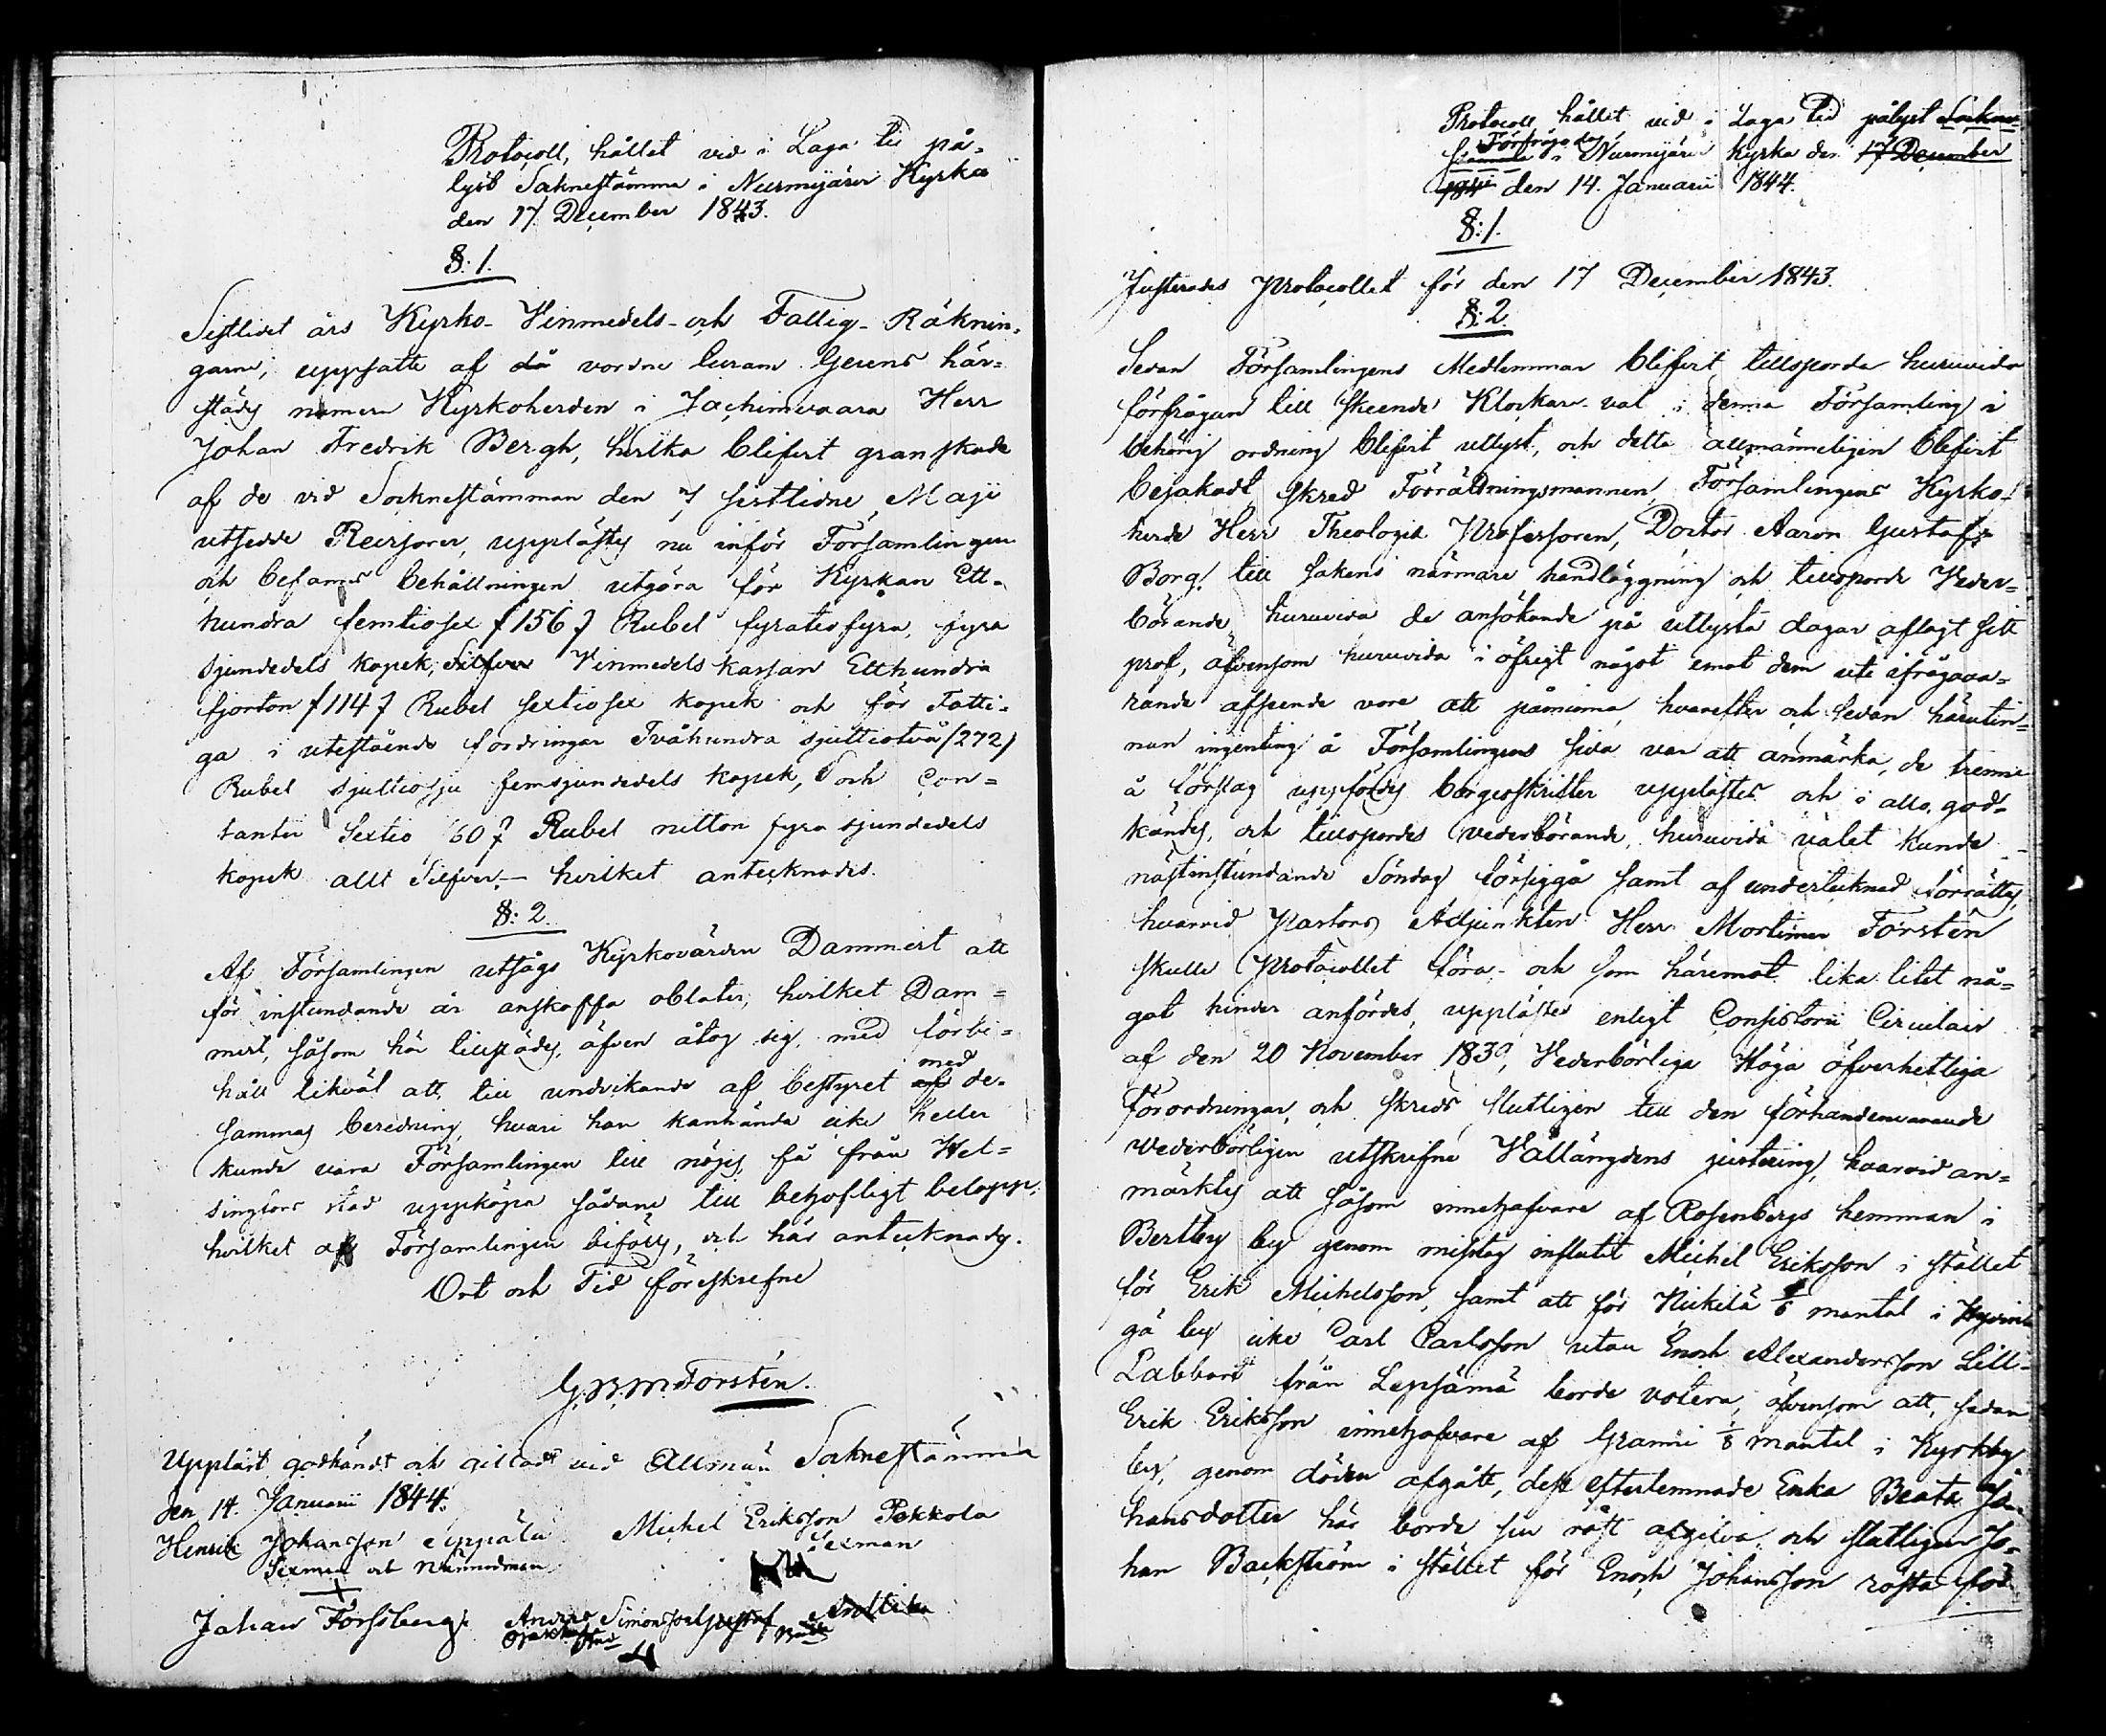 Protocoll, hållet vid i Laga tid på-
lyst Socknestämma i Nurmijärvi Kyrka
den 17 December 1843.
§: 1.
Sistlidet års Kyrko- Vinmedels- och Fattig- Räknin-
garne, uppsatte af då vordne curam gerens här-
städes numera Kyrkoherden i Jochimvaara Herr
Johan Fredrik Bergh, hvilka blifvit granskade
af de vid Socknestämman den 7 sistlidne Maji
utsedde Revisorer, upplästes nu inför Församlingen
och befanns behållningen utgöra för Kyrkan Ett-
hundra femtiosex /156/ Rubel fyratiofyra, fyra
sjundedels kopek, Silfver Vinmedels kassan Etthundra
fjorton /114/ Rubel sextiosex kopek och för Fatti-
ga i utestående fordringar Tvåhundra sjuttiotvå /272/
Rubel sjuttiosju femsjundedels kopek, och Con-
tanter Sextio /60/ Rubel nitton fyra sjundedels
kopek allt Silfver,— hvilket antecknades.
§: 2.
Af Församlingen utsågs Kyrkovärden Dammert att
för instundande år anskaffa oblater, hvilket Dam-
mert, såsom här tillstädes, äfven åtog sig, med förbe-
håll likväl att, till undvikande af bestyret med de-
sammas beredning, hvari han kanhända icke heller
kunde vara Församlingen till nöjes, få från Hel-
singfors stad uppköpa sådane till behofligt belopp,
hvilket af Församlingen bifölls, och här antecknades.
Ort och Tid föreskrefne
G. B. M. Forstén.
Uppläst godkändt och gilladt vid Allmän Socknestämma
den 14. Januarii 1844.
Henrik Johansson Seppälä Michel Eriksson Pekkola
Sexman och Nämndman Sexman
Johan Forssberg. Anders Simonsson Gustaf
Protocoll hållet vid i Laga tid pålyst Sockne-
Förfrågodag
stämma i Nurmijärvi Kyrka den 17 December
den 14. Januarii 1844.
§: 1.
Justerades Protocollet för den 17 December 1843.
§: 2.
Sedan Församlingens Medlemmar blifvit tillsporda huruvida
förfrågan till skeende Klockare-val i denna Församling i
behörig ordning blifvit utlyst, och detta allmänneligen blifvit
bejakadt, skred Förrättningsmannen, Församlingens Kyrko-
herde Herr Theologie Professoren, Doctor Aaron Gustaf
Borg, till sakens närmare handläggning och tillsporde Veder-
börande, huruvida de ansökande på utlysta dagar aflagt sitt
prof, äfvensom huruvida i öfrigt något emot dem ute ifrågava-
rande afseende vore att påminna, hvarefter och sedan härutin-
nan ingenting å Församlingens sida var att anmärka, de trenne
å förslag uppfördes börgesskrifter upplästes och i allo god-
kändes, och tillspordes vederbörande, huruvida valet kunde
nästinstundande Söndag försiggå samt af undertecknad förrättas,
hvarvid Pastors Adjunkten Herr Mortimer Forstén
skulle Protocollet föra- och som häremot lika litet nå-
got hinder anfördes, upplästes enligt Consistorii Circulair
af den 20 November 1839, Vederbörliga Höga öfverhetliga
Förordningar, och skreds slutligen till den förhandenvarande
vederbörligen utskrifne Vallängdens justering, hvarvid an-
märktes att såsom innehafvare af Rosenbergs hemman i
Bertby by genom misstag influtit Michel Eriksson i stället
för Erik Michelsson, samt att för Nickilä 1/6 mantal i Hyvin-
gä by icke Carl Carlsson utan Enoch Alexandersson Lill-
Labbart från Lepsämä borde votera, äfvensom att, sedan
Erik Eriksson innehafvare af Granni 1/8 mantal i Kyrkby
by, genom döden afgått, dess efterlemnade Enka Beata Jo-
hansdotter här borde sin röst afgifva, och slutligen Jo-
han Backström i stället för Enoch Johansson rösta för